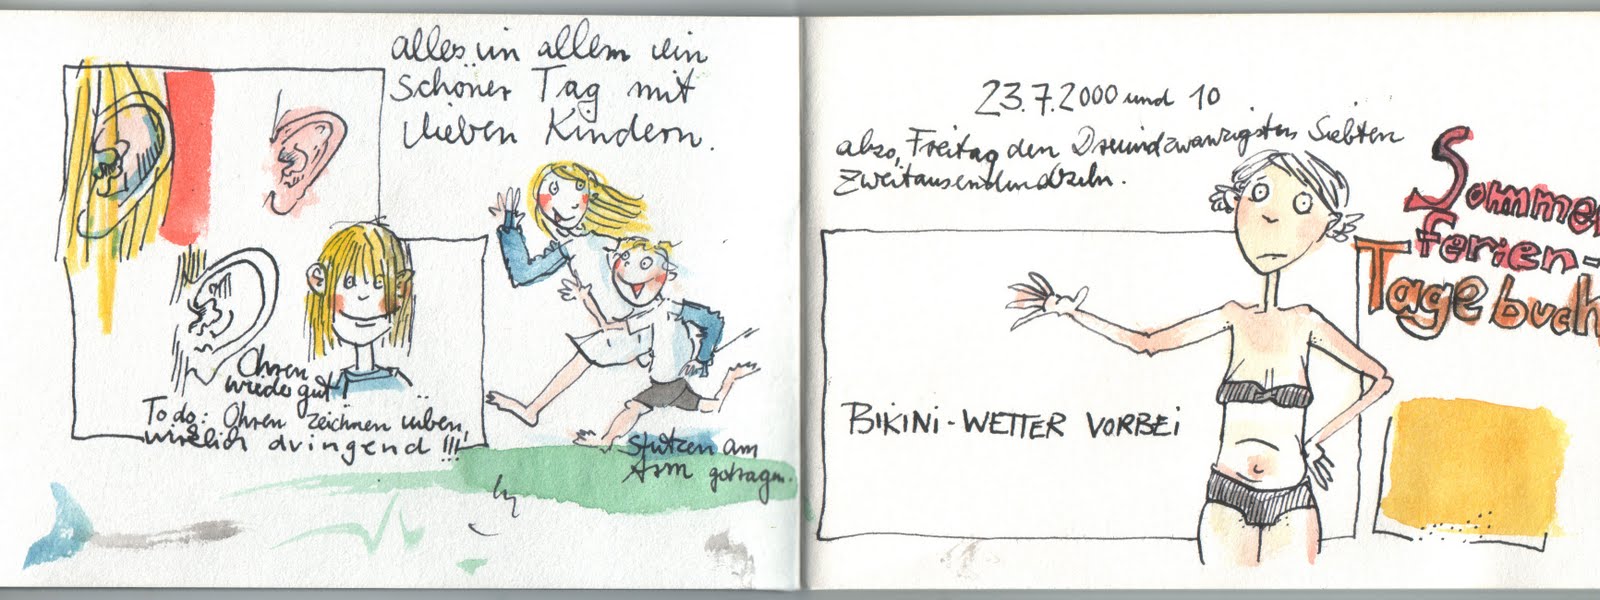 alles in allem ein
schöner Tag mit
lieben Kindern.
Ohren
wieder gut
To do: Ohren zeichnen üben,
wirklich dringend !!!
Stutzen am
Arm getragen.
23.7.2000 und 10
also, Freitag den Dreiundzwanzigsten Siebten
Zweitausendundzehn.
Sommer
ferien-
Tagebuch
BIKINI-WETTER VORBEI